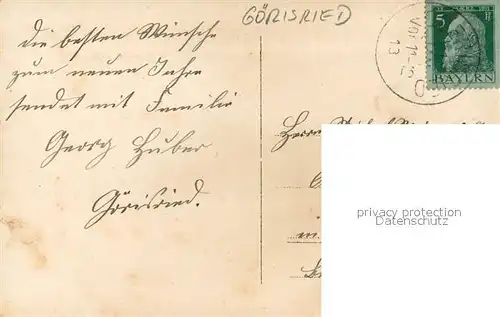 GÖRISRIED
Die besten Wünsche
zum neuen Jahre
sendet mit Familie
Georg Huber
Görisried.
5 Pf
BAYERN
VOR 11-12
13
Herrn
in
privacy protection
Datenschutz